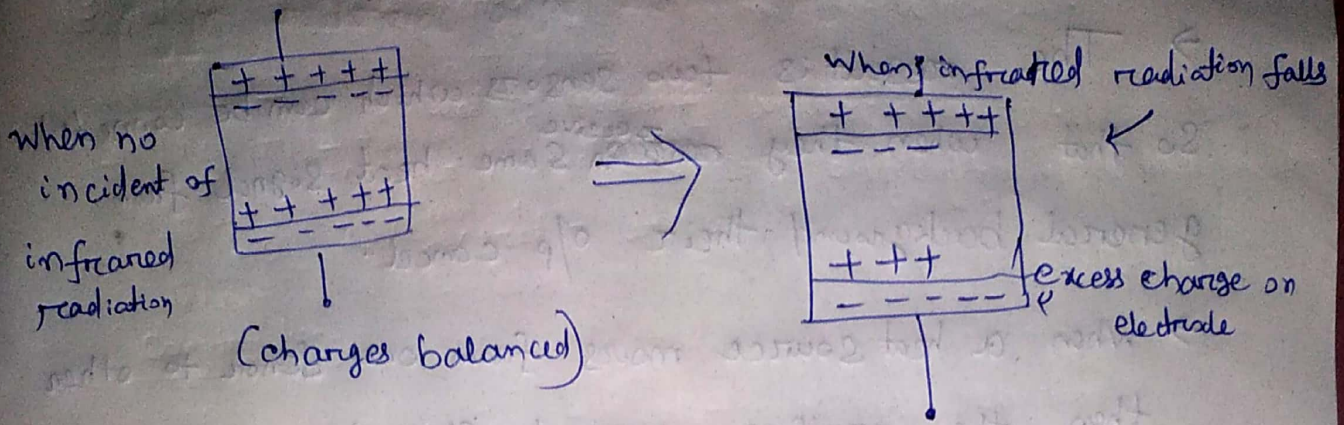 When no
incident of
infrared
radiation
+ + + + +
- - - - -
+ + + + +
- - - - -
(charges balanced)
When infrared radiation falls
+ + + + +
- - -
+ + +
- - - - -
excess charge on
electrode